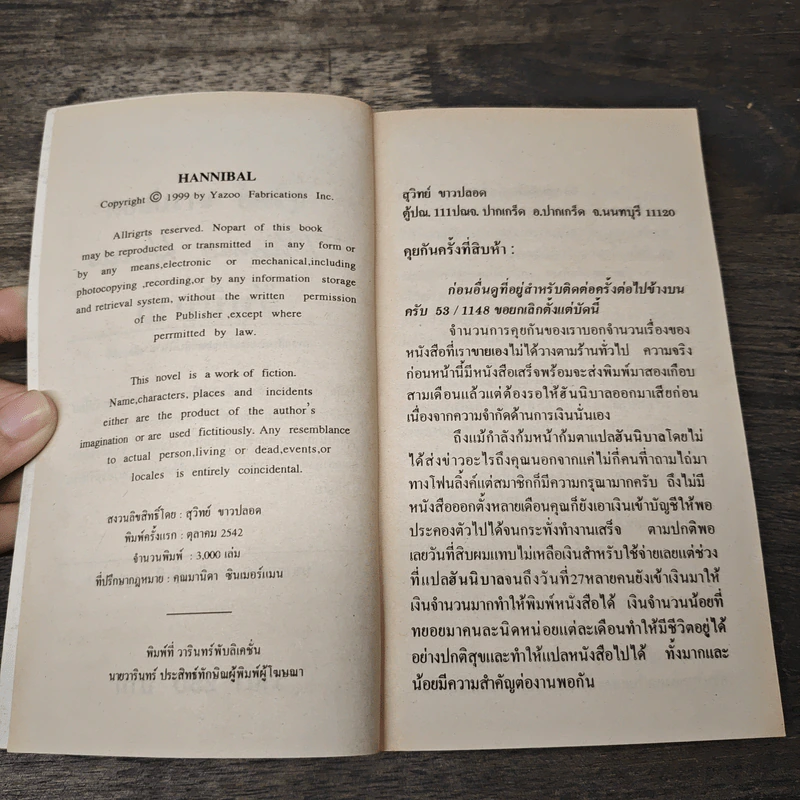 HANNIBAL
Copyright © 1999 by Yazoo Fabrications Inc.
Allrigrts reserved. Nopart of this book
may be reproduced or transmitted in any form or
by any means,electronic or mechanical,including
photocopying ,recording,or by any information storage
and retrieval system, without the written permission
of the Publisher ,except where
perrmitted by law.
This novel is a work of fiction.
Name,characters, places and incidents
either are the product of the author's
imagination or are used fictitiously. Any resemblance
to actual person,living or dead,events,or
locales is entirely coincidental.
สงวนลิขสิทธิ์โดย : สุวิทย์ ขาวปลอด
พิมพ์ครั้งแรก : ตุลาคม 2542
จำนวนพิมพ์ : 3,000 เล่ม
ที่ปรึกษากฎหมาย : คุณมานิดา ซินเมอร์แมน
พิมพ์ที่ วารินทร์พับลิเคชั่น
นายวารินทร์ ประสิทธ์ทักษิณผู้พิมพ์ผู้โฆษณา
สุวิทย์ ขาวปลอด
ตู้ปณ. 111ปณจ. ปากเกร็ด อ.ปากเกร็ด จ.นนทบุรี 11120
คุยกันครั้งที่สิบห้า :
ก่อนอื่นดูที่อยู่สำหรับติดต่อครั้งต่อไปข้างบน
ครับ 53 / 1148 ขอยกเลิกตั้งแต่บัดนี้
จำนวนการคุยกันของเราบอกจำนวนเรื่องของ
หนังสือที่เราขายเองไม่ได้วางตามร้านทั่วไป ความจริง
ก่อนหน้านี้มีหนังสือเสร็จพร้อมจะส่งพิมพ์มาสองเกือบ
สามเดือนแล้วแต่ต้องรอให้ฮันนิบาลออกมาเสียก่อน
เนื่องจากความจำกัดด้านการเงินนั่นเอง
ถึงแม้กำลังก้มหน้าก้มตาแปลฮันนิบาลโดยไม่
ได้ส่งข่าวอะไรถึงคุณนอกจากแค่ไม่กี่คนที่ถามไถ่มา
ทางโฟนลิ้งค์แต่สมาชิกก็มีความกรุณามากครับ ถึงไม่มี
หนังสือออกตั้งหลายเดือนคุณก็ยังเอาเงินเข้าบัญชีให้พอ
ประคองตัวไปได้จนกระทั่งทำงานเสร็จ ตามปกติพอ
เลยวันที่สิบผมแทบไม่เหลือเงินสำหรับใช้จ่ายเลยแต่ช่วง
ที่แปลฮันนิบาลจนถึงวันที่27หลายคนยังเข้าเงินมาให้
เงินจำนวนมากทำให้พิมพ์หนังสือได้ เงินจำนวนน้อยที่
ทยอยมาคนละนิดหน่อยแต่ละเดือนทำให้มีชีวิตอยู่ได้
อย่างปกติสุขและทำให้แปลหนังสือไปได้ ทั้งมากและ
น้อยมีความสำคัญต่องานพอกัน